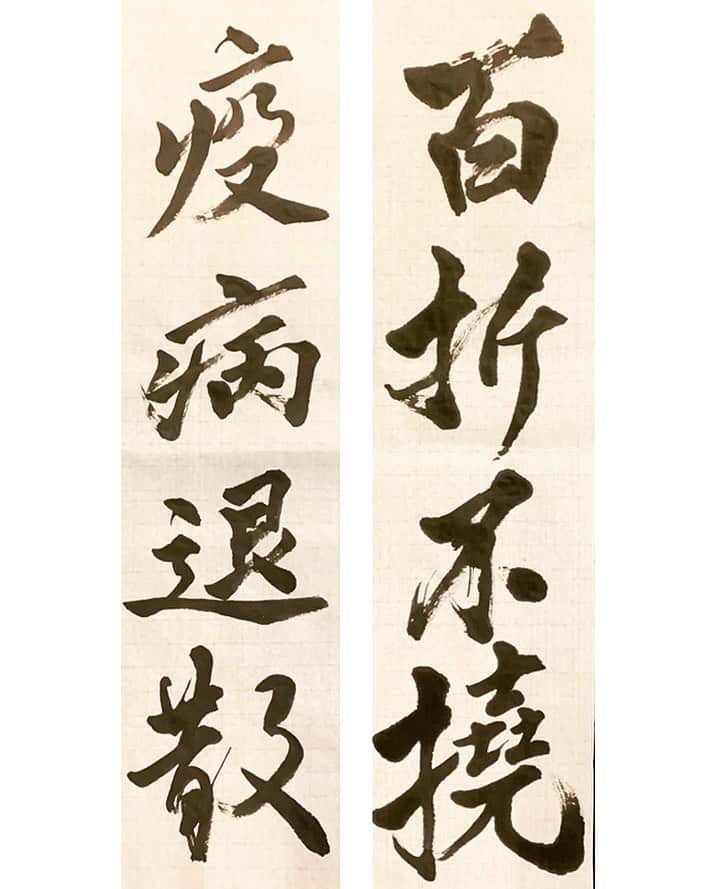 百折不撓
疫病退散